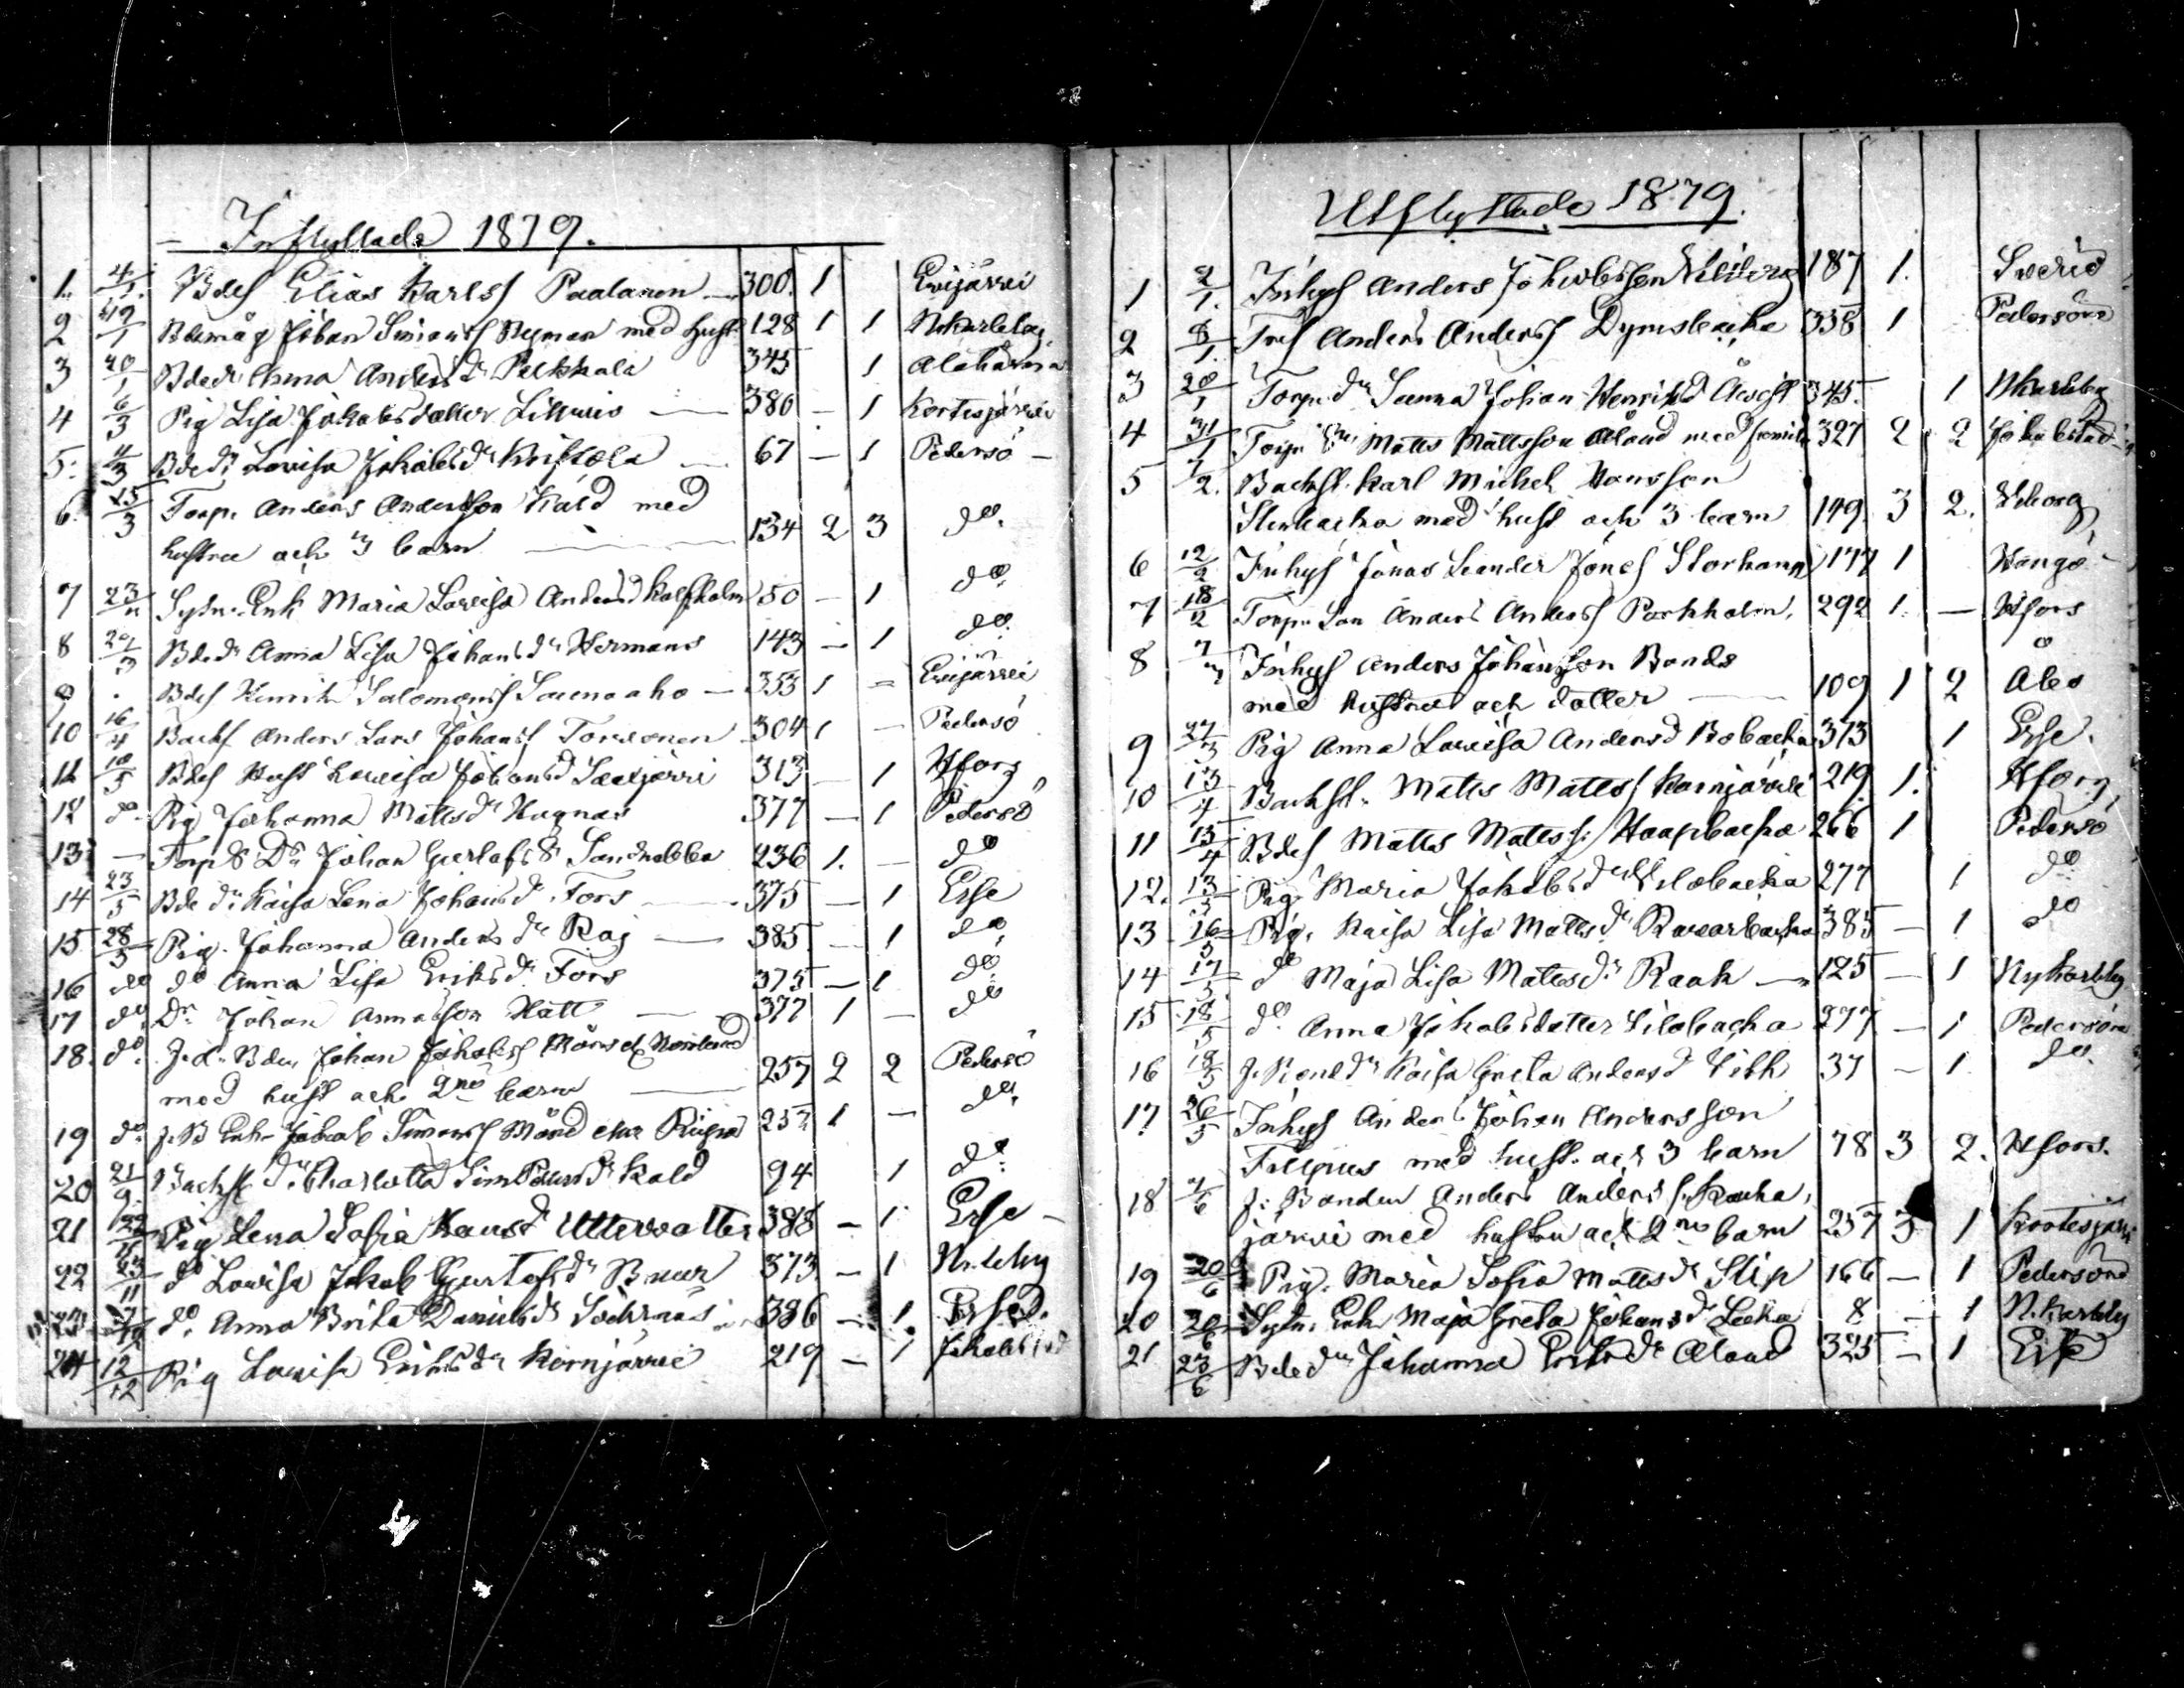 Inflyttade 1879.
1. 4/1. Bdes Elias Karlss Paalanen 300. 1 Evijärvi
2 19/1 Bdemåg Johan Simonss Nyman med hust 128 1 1 Nkarleby
3 20/1 Bdedr Anna Andersdr Pelkkala 345 1 Alahärmä
4 6/3 Pig Lisa Jakobsdotter Lillurio 380 — 1 Kortesjärvi
5. 11/3 Bdedr Lovisa Jakobsdr Kriskola 67 — 1 Pedersö —
6. 15/3 Torp. Anders Andersson Kald med
hustru och 3 barn 134 2 3 do.
7 23/ Sytn. Enk Maria Lovisa Andersd Kalfholm 50 — 1 do.
8 2/3 Bdedr Anna Lisa Johansdr Hermans 143 — 1 do.
9 . Bdes Henrik Salomonss Saunaaho — 353 1 = Evijärvi
10 16/4 Backs Anders Lars Johanss Torvonen 304 1 — Pedersö
11 10/5 Bdes Hust Lovisa Johansd Saarijärvi 313 — 1 Hfors
12 do Pig Johanna Mattsdr Hagnas 377 — 1 Pedersö
13 — Torp S Dr Johan Gustafs S Sandnabba 236 1. — do
14 23/5 Bde dr Kaisa Lena Johansd Fors 375 — 1 Esse
15 28/5 Pig. Johanna Andersdr Raj — 385 — 1 do
16 do do Anna Lisa Eriksdr Fors 375 — 1 do
17 do Dr Johan Annasson Hatt 377 1 — do
18. do. J.d. Bden Johan Jakobss Måns
med hust och 2ne barn 257 2 2 Pedersö
19 do J.B Enk Jakob Simonss Månd 257 1 — do.
20 21/9. Backst. dr Charlotta Kald 94 1 do
21 22/ Pig Lena Sofia Hansd Uttervatter 388 — 1 Esse —
22 23/11 do Lovisa Jakob Gustafsdr Buur 373 — 1 N.leby
do. Anna Brita Danielsdr 386 — 1.
24 12/12 Pig Lovisa Eriksdr Kornjärvi 219 — 1 Jakobstad
Utflyttade 1879.
1 2/1. Inhys Anders Jakobsson 187 1. Sverie
2 8/1. Tors Anders Anderss Dymsbacka 338 1 Pedersöre
3 20/1 Torp.dr Sanna Johan Henriksd 345. 1 Nkarleby
4 31/1 Torp Matts Mattsson Åland med famil 327 2 2 Jakobstad
5 7/2. Backst. Karl Michel Hansson
Stenbacka med hust och 3 barn 149. 3 2. Wiborg
6 12/2 Inhys Jonas Leander Jones Storkamp 177 1 Hangö
7 18/2 Torp. Son Anders Anderss Parkholm. 292 1. — Hfors
8 7/3 Inhys Anders Johansson Bonds
med hustru och dotter 109 1 2 Åbo
9 27/3 Pig Anna Lovisa Andersd Bobacka 373 1 Esse.
10 13/4 Backst. Matts Mattss Kornjärvi 219 1. Hfors,
11 15/4 Bdes Matts Mattss: Haapbacka 266 1 Pedersö
12. 13/5 Pig Maria Jakobsdr Lilobacka 277 1 do
13 16/5 Pig. Kaisa Lisa Mattsdr 385 — 1 do
14 17/5 do Maja Lisa Mattsdr Raak — 125 — 1 Nykarleby
15 18/5 do. Anna Jakobsdotter Lilobacka 277 — 1 Pedersöre
16 18/5 J. Kaisa Greta Andersd 37 — 1 do.
17 26/5 Inhys Anders Johan Andersson
Filppus med hust. och 3 barn 78 3 2. Hfors.
18 2/6 J: Bonden Anders Anderss Kauha,
järvi med hustru och 2ne barn 257 3 1 Kortesjärvi
19 20/6 Pig. Maria Sofia Mattsdr Slip 166 — 1 Pedersöre
20 20/6 Sytn. Enk Maja Greta Johansdr 8 — 1 N.karleby
21 23/6 Bdedr Johanna Eriksdr Åland 325 — 1